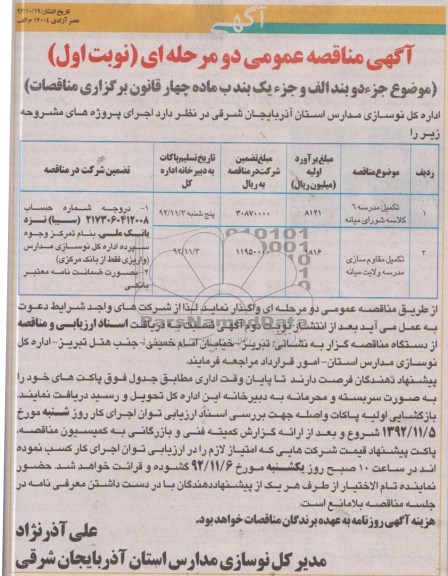 تاریخ انتشار: ۹۲/۱۰/۱۹
عصر آزادی ۱۲۰۰۴ م الف
آگهی
آگهی مناقصه عمومی دو مرحله ای (نوبت اول)
(موضوع جزء دو بند الف و جزء یک بند ب ماده چهار قانون برگزاری مناقصات)
اداره کل نوسازی مدارس استان آذربایجان شرقی در نظر دارد اجرای پروژه های مشروحه
زیر را
ردیف | موضوع مناقصه | مبلغ برآورد اولیه (میلیون ریال) | مبلغ تضمین شرکت در مناقصه به ریال | تاریخ تسلیم پاکات به دبیرخانه اداره کل | تضمین شرکت در مناقصه
۱ | تکمیل مدرسه ۶ کلاسه شورای میانه | ۸۱۲۱ | ۳۰۸۷۰۰۰۰ | پنج شنبه ۹۲/۱۱/۳
تکمیل مقاوم سازی مدرسه ولایت میانه | ۸۱۶ | ۱۱۹۵۰۰۰۰ | ۹۲/۱۱/۳
۱- دروجه شماره حساب
۲۱۷۳۰۶۰۴۱۲۰۰۸ (سیبا) نزد
بانک ملی بنام تمرکز وجوه
سپرده اداره کل نوسازی مدارس
(واریزی فقط از بانک مرکزی)
۲- بصورت ضمانت نامه معتبر
بانکی
از طریق مناقصه عمومی دو مرحله ای واگذار نماید لذا از شرکت های واجد شرایط دعوت
به عمل می آید بعد از انتشار نوبت دوم آگهی نسبت به دریافت اسناد ارزیابی و مناقصه
از دستگاه مناقصه گزار به نشانی: تبریز- خیابان امام خمینی- جنب هتل تبریز- اداره کل
نوسازی مدارس استان- امور قرارداد مراجعه فرمایند
پیشنهاد دهندگان فرصت دارند تا پایان وقت اداری مطابق جدول فوق پاکت های خود را
به صورت سربسته و محرمانه به دبیرخانه این اداره کل تحویل و رسید دریافت نمایند.
بازگشایی اولیه پاکات واصله جهت بررسی اسناد ارزیابی توان اجرای کار روز شنبه مورخ
۱۳۹۲/۱۱/۵ شروع و بعد از ارائه گزارش کمیته فنی و بازرگانی به کمیسیون مناقصه،
پاکت پیشنهاد قیمت شرکت هایی که امتیاز لازم را در ارزیابی توان اجرای کار کسب نموده
اند در ساعت ۱۰ صبح روز یکشنبه مورخ ۹۲/۱۱/۶ گشوده و قرائت خواهد شد. حضور
نماینده تام الاختیار از طرف هر یک از پیشنهاددهندگان با در دست داشتن معرفی نامه در
جلسه مناقصه بلامانع است.
هزینه آگهی روزنامه به عهده برندگان مناقصات خواهد بود.
علی آذرنژاد
مدیر کل نوسازی مدارس استان آذربایجان شرقی